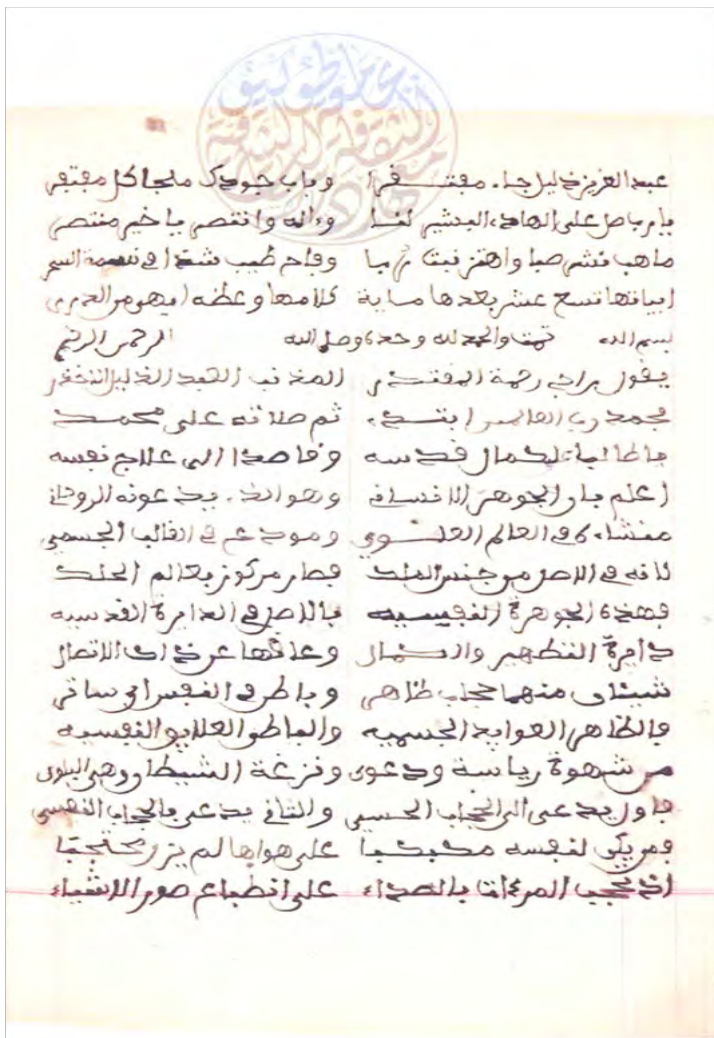 عبد العزيز ذليل جاء مفتقرا وباب جودك ملجا كل مفتقر
يا رب صل على الهادي البشير لنا وءاله وانتصر يا خير منتصر
ما هب نشر صبا واهتز نبت ربا وفاح طيب شذا في نسمة السحر
ابياتها تسع عشر بعدها ماية كلامها وعظه ابهى من الدرر
بسم الله تمت والحمد لله وحده وصلى الله الرحمن الرحيم
يقول راجي رحمة المقتدر المذنب العبد الذليل
بحمد رب العالمين ابتدء ثم صلاته على محمد
يا طالبا لكمال قدسه وقاصدا الى علاج نفسه
اعلم بان الجوهر الانساني وهو الذي يدعونه الروحاني
منشاءه في العالم العلوي ومودع في القالب الجسمي
لانه في الاصل من جنس الملد فصار مركوز بعالم الجلد
فهذه الجوهرة النفيسيه بالاصل في الدايرة القدسيه
دايرة التطهير والكمال وعاقها عن ذاك الاتصال
شيئان منهما حجاب ظاهر وباطن في النفس اي ساتر
فالظاهر العوايد الجسميه والباطن العلايق النفسيه
من شهوة رياسة ودعوى ونزغة الشيطان وهي البلوى
فاول يدعى الى الحجاب الحسي والثاني يدعى بالحجاب النفسي
فمن يكن لنفسه مكبكبا على هواها لم يزل محتجبا
اذ تحجب المرءات بالصداء على انطباع صور الاشياء